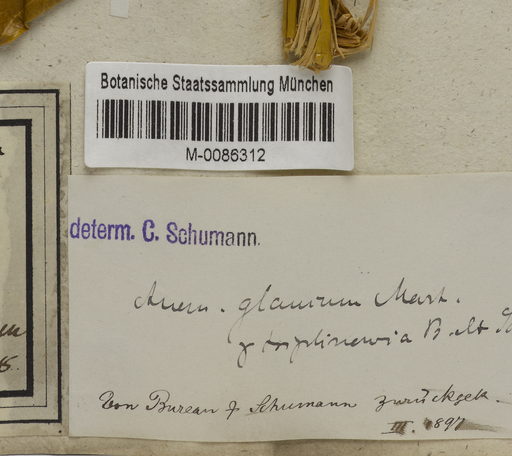 Botanische Staatssammlung München
M-0086312
determ. C. Schumann.
Anem. glaucum Mart.
γ triplinervia B. et
Von Bureau & Schumann zurückgek.
III. 1897